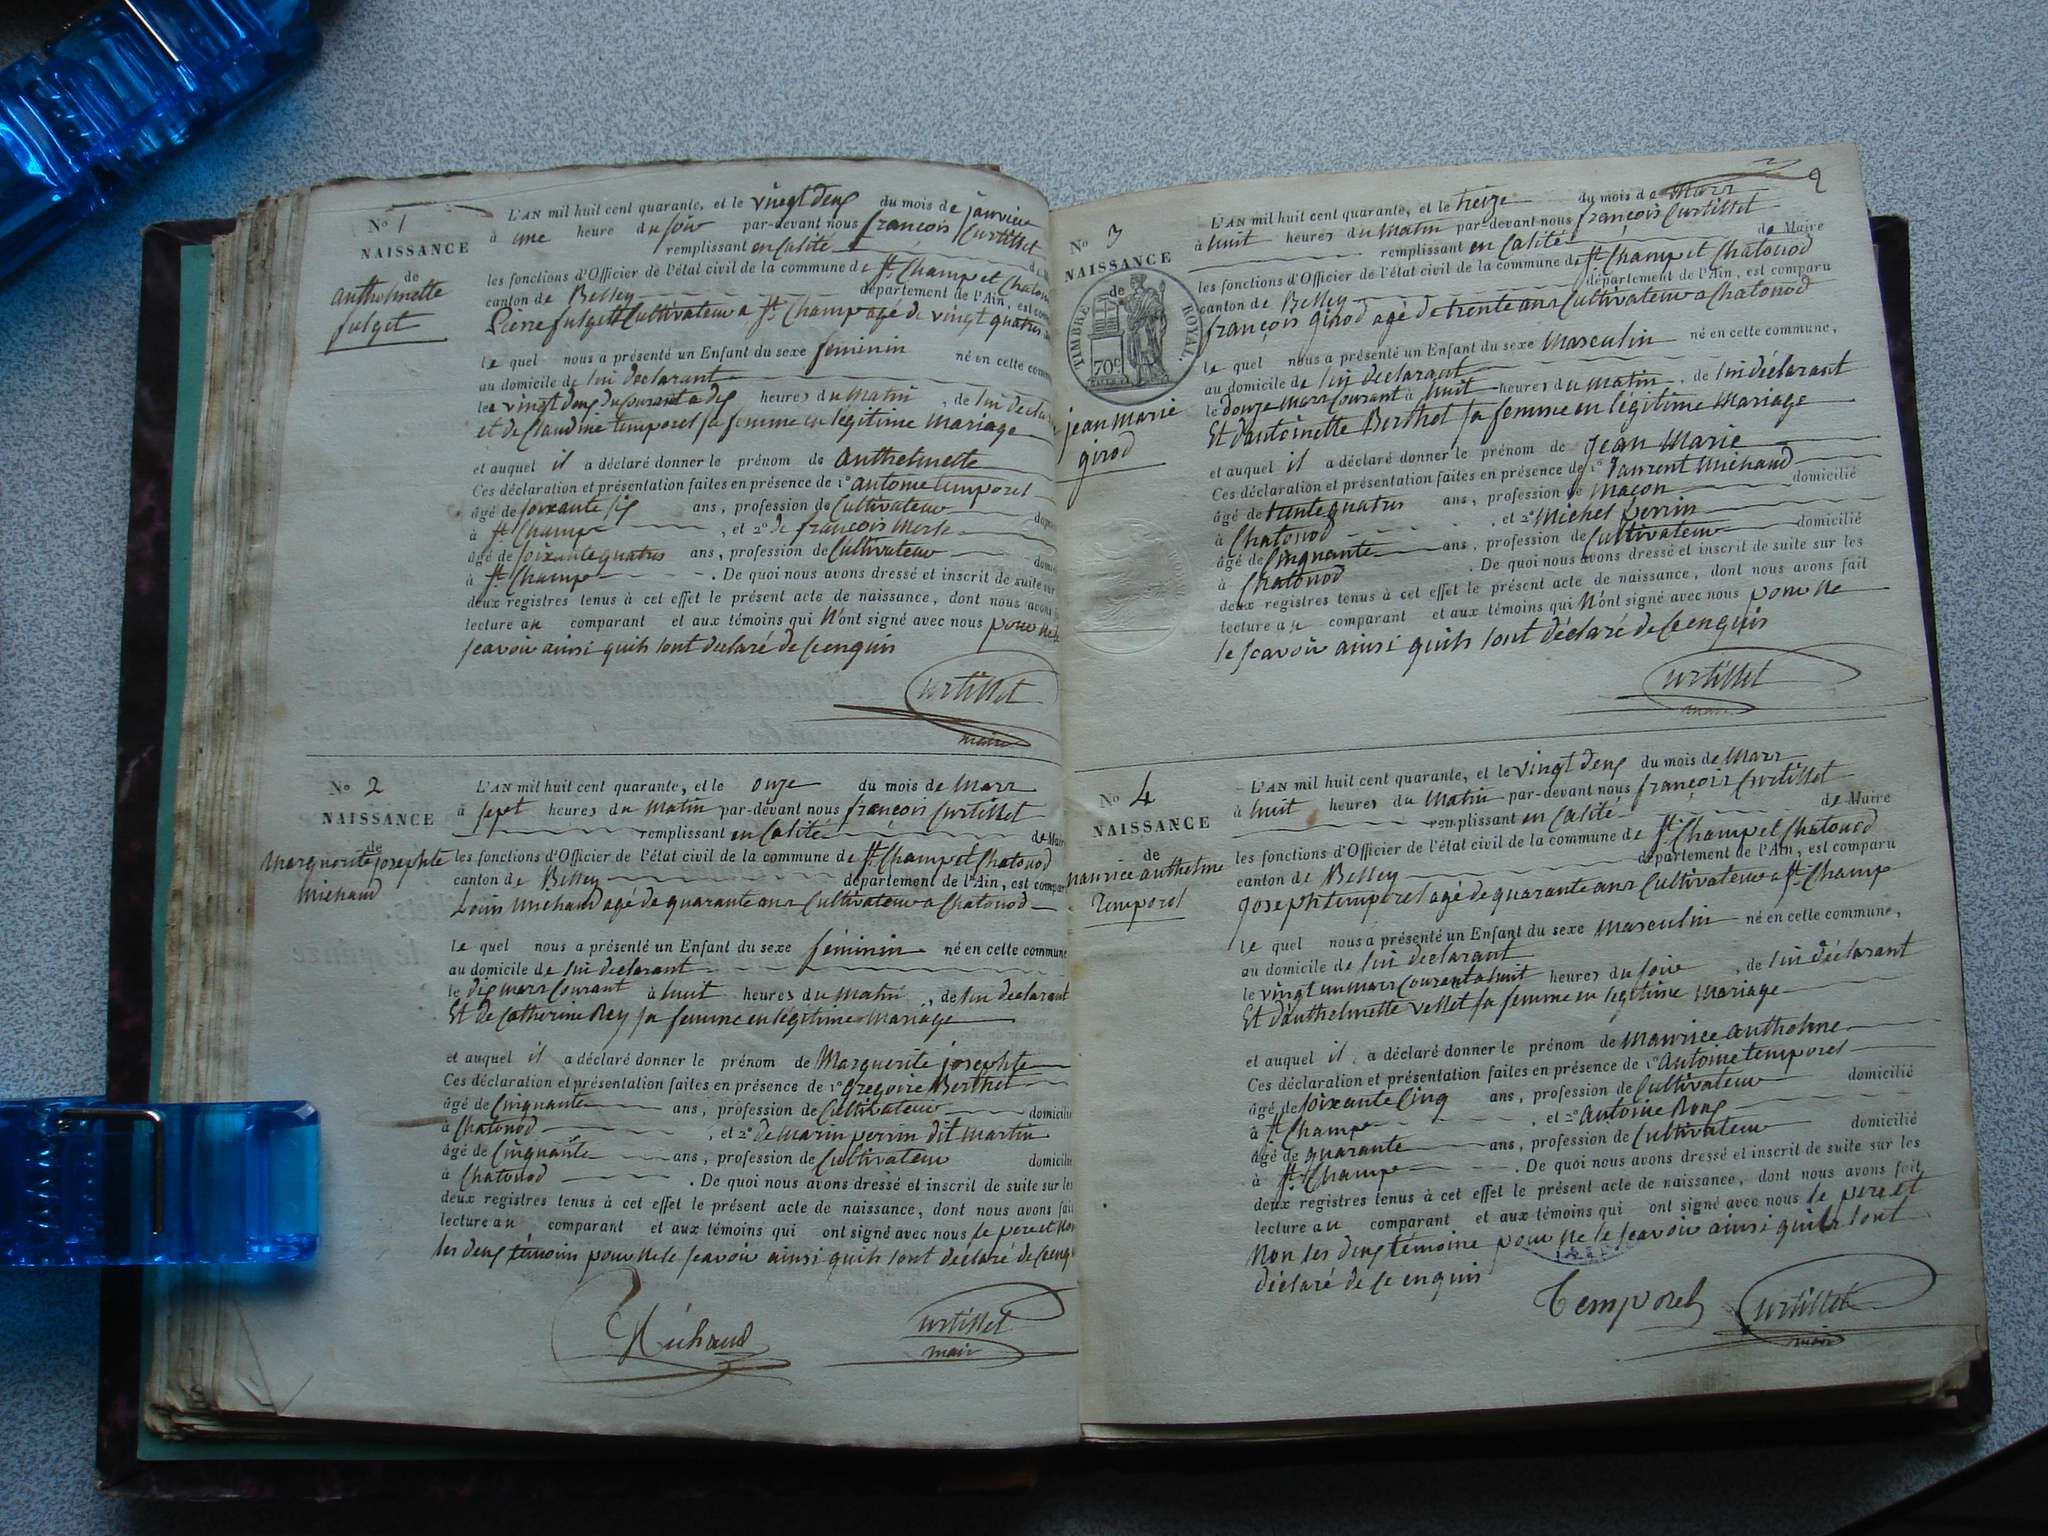 N° 1
NAISSANCE
de
anthelmette
fulget
L'AN mil huit cent quarante, et le vingt deux du mois de janvier
à une heure du soir par-devant nous françois Curtillet
remplissant en Calité
les fonctions d'Officier de l'état civil de la commune de St. Champ et Chatonod
canton de Belley département de l'Ain, est comparu
Pierre fulget Cultivateur a St. Champ agé de vingt quatre
Le quel nous a présenté un Enfant du sexe féminin né en cette commune
au domicile de lui déclarant
le vingt deux du courant a dix heures du matin, de lui déclarant
et de Claudine temporel sa femme en légitime mariage
et auquel il a déclaré donner le prénom de anthelmette
Ces déclaration et présentation faites en présence de 1° antoine temporel
âgé de soixante six ans, profession de Cultivateur
à St. Champ, et 2° de françois merle
âgé de soixante quatre ans, profession de Cultivateur
à St. Champ. De quoi nous avons dressé et inscrit de suite sur
deux registres tenus à cet effet le présent acte de naissance, dont nous avons
lecture au comparant et aux témoins qui n'ont signé avec nous pour ne le
scavoir ainsi quils sont declaré de ce enquis
Curtillet
maire
N° 2
NAISSANCE
de
Marguerite josephte
Michaud
L'AN mil huit cent quarante, et le onze du mois de mars
à sept heures du matin par-devant nous françois Curtillet
remplissant en Calité de Maire
les fonctions d'Officier de l'état civil de la commune de St. Champ et Chatonod
canton de Belley département de l'Ain, est comparu
Louis Michaud agé de quarante ans Cultivateur a Chatonod
Le quel nous a présenté un Enfant du sexe féminin né en cette commune
au domicile de lui declarant
le dix mars courant à huit heures du matin, de lui declarant
Et de Catherine Rey sa femme en légitime mariage
et auquel il a déclaré donner le prénom de Marguerite josephte
Ces déclaration et présentation faites en présence de 1° Gregoire Berthet
âgé de Cinquante ans, profession de Cultivateur domicilié
à Chatonod, et 2° de marin perrin dit martin
âgé de Cinquante ans, profession de Cultivateur domicilié
à Chatonod. De quoi nous avons dressé et inscrit de suite sur les
deux registres tenus à cet effet le présent acte de naissance, dont nous avons fait
lecture au comparant et aux témoins qui ont signé avec nous le pere et non
les deux témoins pour ne le scavoir ainsi quils sont declaré de ce enquis
Michaud
Curtillet
mair
2
N° 3
NAISSANCE
de
TIMBRE ROYAL.
70c
jean marie
girod
L'AN mil huit cent quarante, et le treize du mois de mars
à huit heures du matin par-devant nous françois Curtillet
remplissant en Calité de Maire
les fonctions d'Officier de l'état civil de la commune de St. Champ et Chatonod
canton de Belley département de l'Ain, est comparu
françois girod agé de trente ans Cultivateur a Chatonod
Le quel nous a présenté un Enfant du sexe masculin né en cette commune,
au domicile de lui déclarant
le douze mars courant à huit heures du matin, de lui déclarant
Et d'antoinette Berthet sa femme en légitime mariage
et auquel il a déclaré donner le prénom de Jean Marie
Ces déclaration et présentation faites en présence de 1° laurent michaud
âgé de trente quatre ans, profession de maçon domicilié
à Chatonod, et 2° michel perrin
âgé de Cinquante ans, profession de Cultivateur domicilié
à Chatonod. De quoi nous avons dressé et inscrit de suite sur les
deux registres tenus à cet effet le présent acte de naissance, dont nous avons fait
lecture au comparant et aux témoins qui n'ont signé avec nous pour ne
le scavoir ainsi quils sont déclaré de ce enquis
Curtillet
mair
N° 4
NAISSANCE
de
maurice anthelme
Temporel
L'AN mil huit cent quarante, et le vingt deux du mois de mars
à huit heures du matin par-devant nous françois Curtillet
remplissant en Calité de Maire
les fonctions d'Officier de l'état civil de la commune de St. Champ et Chatonod
canton de Belley département de l'Ain, est comparu
Joseph temporel agé de quarante ans Cultivateur a St. Champ
le quel nous a présenté un Enfant du sexe masculin né en cette commune,
au domicile de lui déclarant
le vingt un mars courant a huit heures du soir, de lui déclarant
Et d'anthelmette vellet sa femme en légitime mariage
et auquel il a déclaré donner le prénom de maurice anthelme
Ces déclaration et présentation faites en présence de 1° Antoine temporel
âgé de soixante cinq ans, profession de Cultivateur domicilié
à St. Champ, et 2° Antoine Roux
âgé de quarante ans, profession de Cultivateur domicilié
à St. Champ. De quoi nous avons dressé et inscrit de suite sur les
deux registres tenus à cet effet le présent acte de naissance, dont nous avons fait
lecture au comparant et aux témoins qui ont signé avec nous le pere et
Non les deux témoins pour ne le scavoir ainsi quils sont
déclaré de ce enquis
Temporel
Curtillet
mair